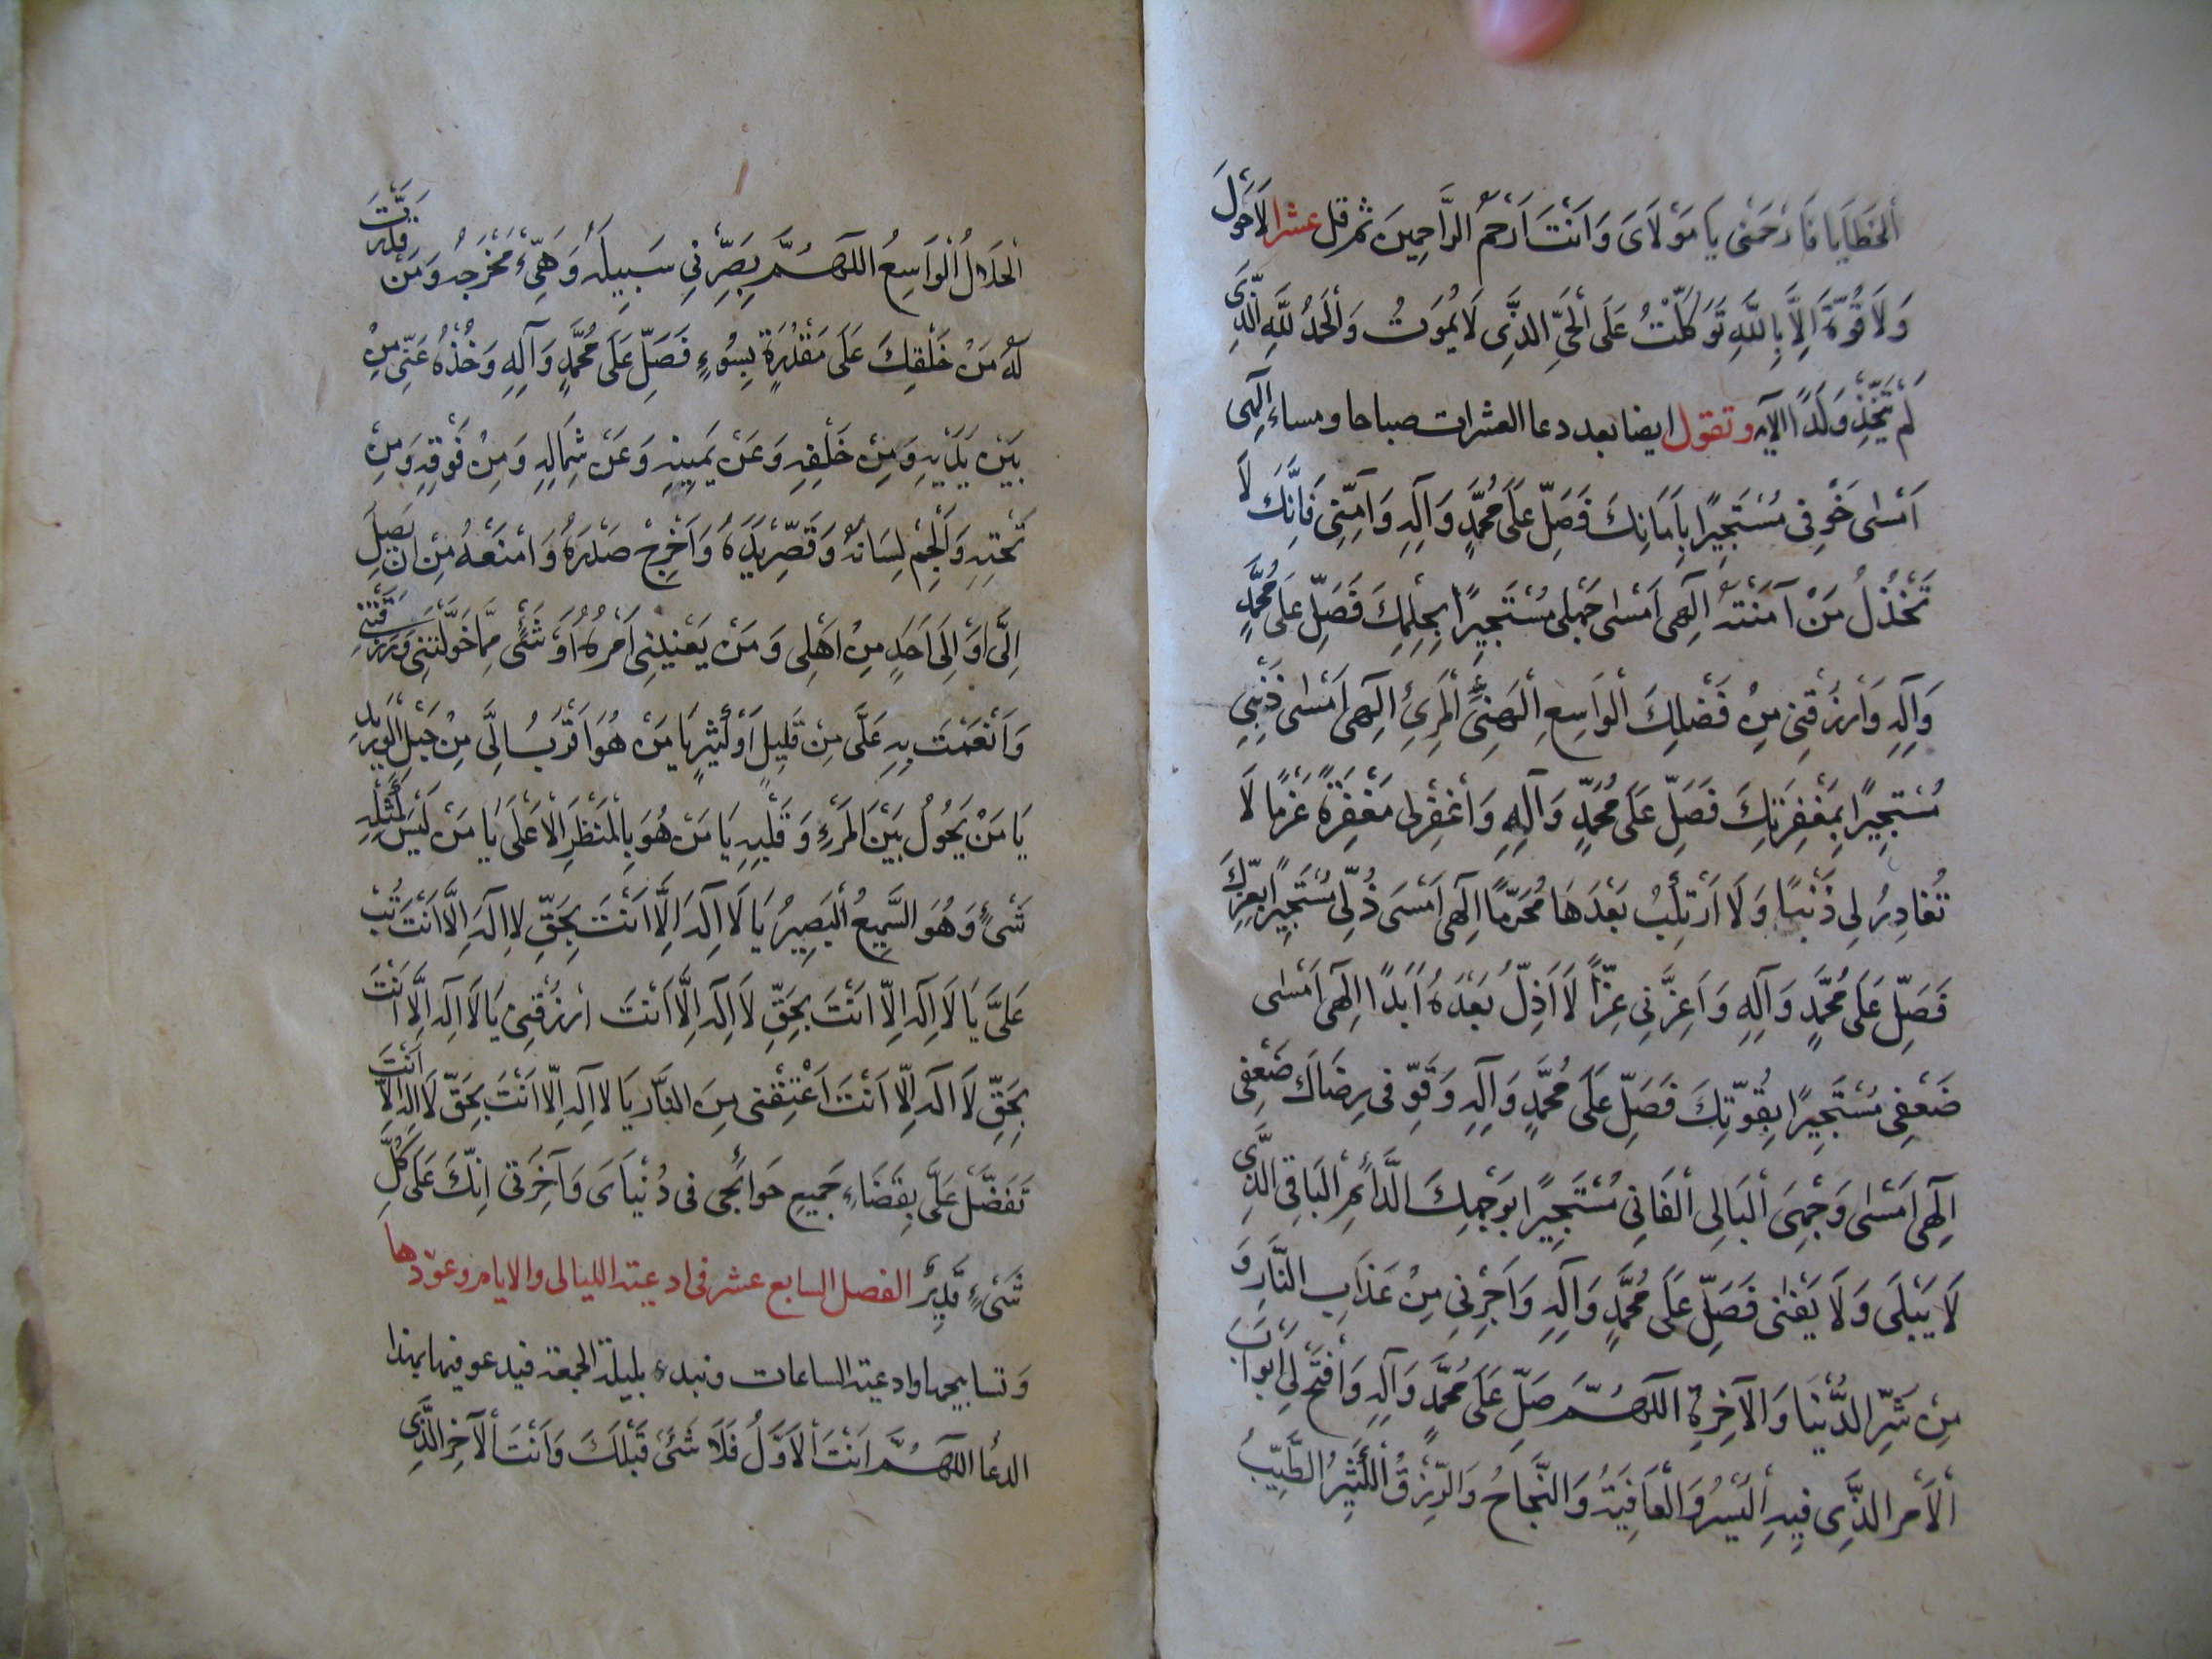 الْخَطَايَا فَارْحَمْنِى يَا مَوْلَاىَ وَاَنْتَ اَرْحَمُ الرَّاحِمِينَ ثم قل عشرا لَاحَوْلَ
وَلَا قُوَّةَ اِلَّا بِاللّٰهِ تَوَكَّلْتُ عَلَى الْحَىِّ الَّذِى لَا يَمُوتُ وَالْحَمْدُ لِلّٰهِ الَّذِى
لَمْ يَتَّخِذْ وَلَدًا الآية وتقول ايضا بعد دعا العشرات صباحا ومساء اِلٰهِى
اَمْسٰى خَوْفِى مُسْتَجِيرًا بِاَمَانِكَ فَصَلِّ عَلَى مُحَمَّدٍ وَآلِهِ وَآمِنِّى فَاِنَّكَ لَا
تَخْذُلُ مَنْ آمَنْتَهُ اِلٰهِى اَمْسٰى جَهْلِى مُسْتَجِيرًا بِحِلْمِكَ فَصَلِّ عَلَى مُحَمَّدٍ
وَآلِهِ وَارْزُقْنِى مِنْ فَضْلِكَ الْوَاسِعِ الْهَنِئِ الْمَرِئِ اِلٰهِى اَمْسٰى ذَنْبِى
مُسْتَجِيرًا بِمَغْفِرَتِكَ فَصَلِّ عَلَى مُحَمَّدٍ وَآلِهِ وَاغْفِرْلِى مَغْفِرَةً عَزْمًا لَا
تُغَادِرُ لِى ذَنْبًا وَلَا اَرْتَكِبُ بَعْدَهَا مُحَرَّمًا اِلٰهِى اَمْسَى ذُلِّى مُسْتَجِيرًا بِعِزِّكَ
فَصَلِّ عَلَى مُحَمَّدٍ وَآلِهِ وَاَعِزَّنِى عِزًّا لَا اَذِلُّ بَعْدَهُ اَبَدًا اِلٰهِى اَمْسٰى
ضَعْفِى مُسْتَجِيرًا بِقُوَّتِكَ فَصَلِّ عَلَى مُحَمَّدٍ وَآلِهِ وَقَوِّ فى رِضَاكَ ضَعْفِى
اِلٰهِى اَمْسٰى وَجْهِىَ الْبَالِى الْفَانِى مُسْتَجِيرًا بِوَجْهِكَ الدَّائِمِ الْبَاقِى الَّذِى
لَا يَبْلَى وَلَا يَفْنٰى فَصَلِّ عَلَى مُحَمَّدٍ وَآلِهِ وَاَجِرْنِى مِنْ عَذَابِ النَّارِ وَ
مِنْ شَرِّ الدُّنْيَا وَالْآخِرَةِ اللّٰهُمَّ صَلِّ عَلَى مُحَمَّدٍ وَآلِهِ وَافْتَحْ لِى اَبْوَابَ
الْاَمْرِ الَّذِى فِيهِ الْيُسْرُ وَالْعَافِيَةُ وَالنَّجَاحُ وَالرِّزْقُ الْكَثِيرُ الطَّيِّبُ
الْحَلَالُ الْوَاسِعُ اللّٰهُمَّ بَصِّرْنِى سَبِيلَهُ وَهَيِّءْ مَخْرَجَهُ وَمَنْ قَدَّرْتَ
لَهُ مِنْ خَلْقِكَ عَلَى مَقْدُرَةً بِسُوءٍ فَصَلِّ عَلَى مُحَمَّدٍ وَآلِهِ وَخُذْهُ عَنِّى مِنْ
بَيْنِ يَدَيْهِ وَمِنْ خَلْفِهِ وَعَنْ يَمِينِهِ وَعَنْ شِمَالِهِ وَمِنْ فَوْقِهِ وَمِنْ
تَحْتِهِ وَاَلْجِمْ لِسَانَهُ وَقَصِّرْ يَدَهُ وَاَحْرِجْ صَدْرَهُ وَامْنَعْهُ مِنْ اَنْ يَصِلَ
اِلَىَّ اَوْ اِلَى اَحَدٍ مِنْ اَهْلِى وَمَنْ يَعْنِينِى اَمْرُهُ اَوْ شَىْءٍ مِمَّا خَوَّلْتَنِى وَرَزَقْتَنِى
وَاَنْعَمْتَ بِهِ عَلَىَّ مِنْ قَلِيلٍ اَوْ كَثِيرٍ يَا مَنْ هُوَ اَقْرَبُ اِلَىَّ مِنْ حَبْلِ الْوَرِيدِ
يَا مَنْ يَحُولُ بَيْنَ الْمَرْءِ وَقَلْبِهِ يَا مَنْ هُوَ بِالْمَنْظَرِ الْاَعْلَى يَا مَنْ لَيْسَ كَمِثْلِهِ
شَىْءٌ وَهُوَ السَّمِيعُ الْبَصِيرُ يَا لَا اِلٰهَ اِلَّا اَنْتَ بِحَقِّ لَا اِلٰهَ اِلَّا اَنْتَ تُبْ
عَلَىَّ يَا لَا اِلٰهَ اِلَّا اَنْتَ بِحَقِّ لَا اِلٰهَ اِلَّا اَنْتَ ارْزُقْنِى يَا لَا اِلٰهَ اِلَّا اَنْتَ
بِحَقِّ لَا اِلٰهَ اِلَّا اَنْتَ اَعْتِقْنِى مِنَ النَّارِ يَا لَا اِلٰهَ اِلَّا اَنْتَ بِحَقِّ لَا اِلٰهَ اِلَّا اَنْتَ
تَفَضَّلْ عَلَىَّ بِقَضَاءِ جَمِيعِ حَوَائِجِى فى دُنْيَاىَ وَآخِرَتِى اِنَّكَ عَلَى كُلِّ
شَىْءٍ قَدِيرٌ الفصل السابع عشر فى ادعية الليالى والايام وعوّذها
وتسابيحها وادعية الساعات ونبدء بليلة الجمعة فيدعو فيها بهذا
الدعا اللّٰهُمَّ اَنْتَ الْاَوَّلُ فَلَا شَىْءَ قَبْلَكَ وَاَنْتَ الْآخِرُ الَّذِى